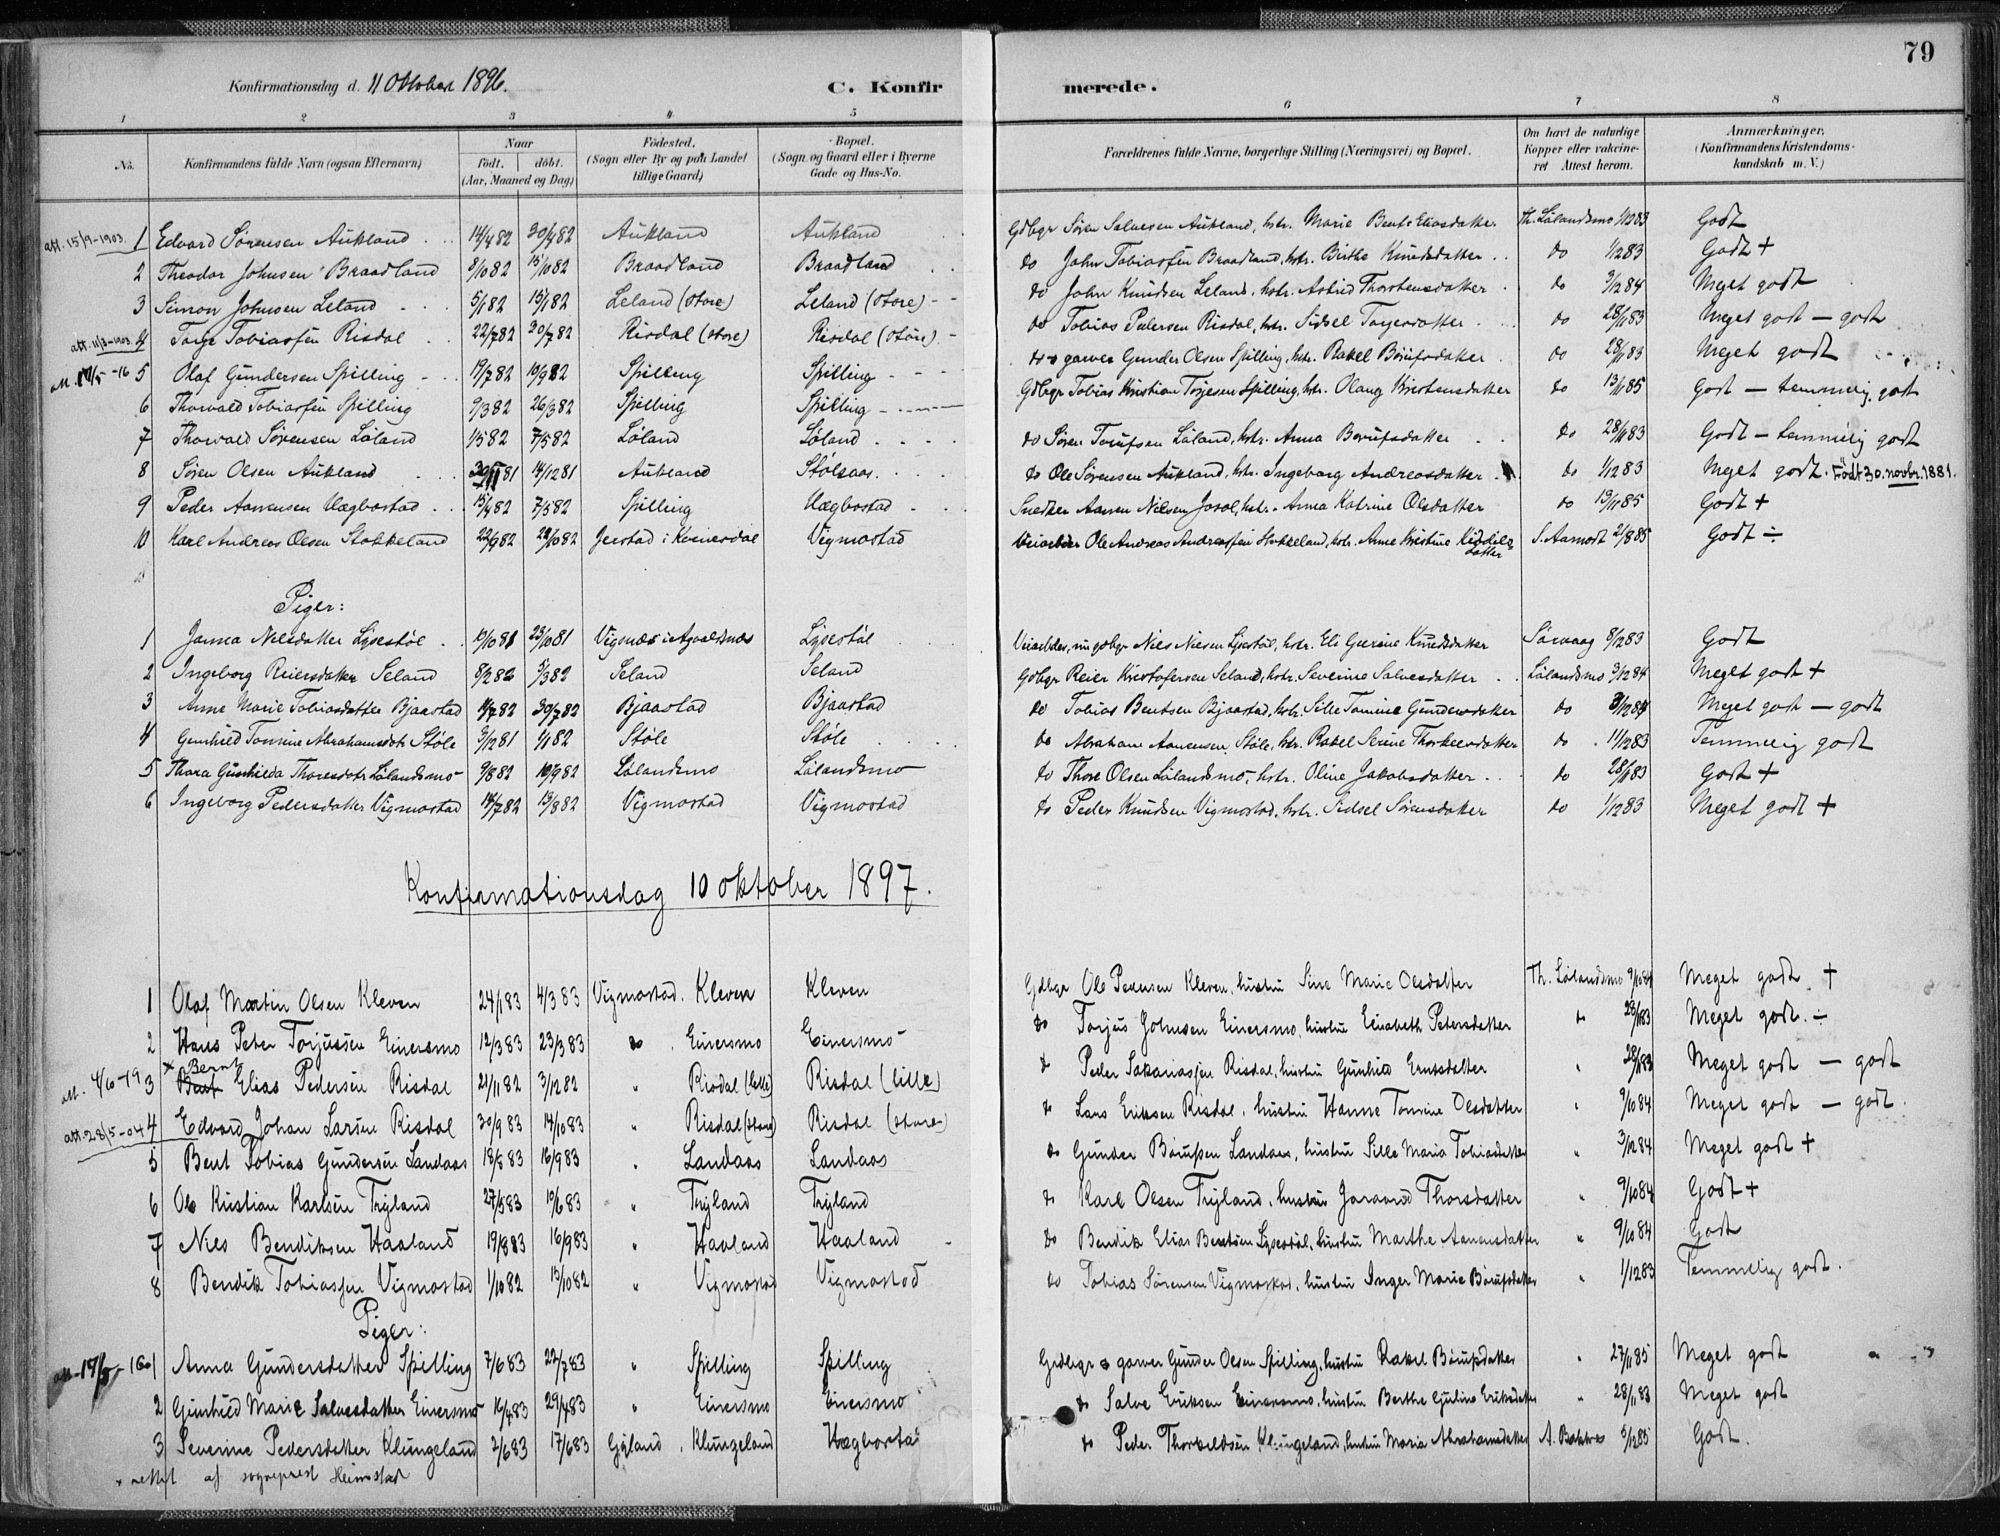 79
Konfirmationsdag d. 11 Oktober 1896. C. Konfirmerede.
1 2 3 4 5 6 7 8
No. Konfirmandens fulde Navn (ogsaa Efternavn) Naar født. døbt. (Aar, Maaned og Dag) Fødested. (Sogn eller By og paa Landet tillige Gaard) Bopæl. (Sogn og Gaard eller i Byerne Gade og Hus-No. Forældrenes fulde Navne, borgerlige Stilling (Næringsvei) og Bopæl. Om havt de naturlige Kopper eller vakcineret Attest herom. Anmærkninger. (Konfirmandens Kristendomskundskab m. V.)
att. 15/9-1903. 1 Edvard Sørensen Aukland 14/4 82 30/4 82 Aukland Aukland Gdbgr Søren Salvesen Aukland, hstr. Marie Bents Eliasdatter Th. Lølandsmo 1/12 83 Godt
2 Theodor Johnsen Braadland 8/10 82 15/10 82 Braadland Braadland do John Tobiassen Braadland, hstr. Birthe Knudsdatter do 1/12 83 Godt +
3 Simon Johnsen Leland 5/1 82 15/1 82 Leland (store) Leland (store) do John Knudsen Leland, hstr. Astrid Thorstensdatter do 3/12 84 Meget godt
att. 11/3-1903. 4 Tarje Tobiassen Risdal 22/7 82 30/7 82 Risdal (store) Risdal (store) do Tobias Pedersen Risdal, hstr. Sidsel Tarjersdatter do 28/11 83 Meget godt - godt
att. 19/5-16 5 Olaf Gundersen Spilling 19/7 82 10/9 82 Spilling Spilling do & garver Gunder Olsen Spilling, hstr. Rakel Børufsdatter do 28/11 83 Meget godt
6 Thorvald Tobiassen Spilling 9/3 82 26/3 82 Spilling Spilling Gdbgr Tobias Kristian Torjesen Spilling, hstr. Olaug Kristensdatter do 13/11 85 Godt - temmelig godt
7 Thorvald Sørensen Løland 1/5 82 7/5 82 Løland Løland do Søren Torufsen Løland, hstr. Anna Børufsdatter do 28/11 83 Godt - temmelig godt
8 Søren Olsen Aukland 30/11 81 14/12 81 Aukland Stølsaas do Ole Sørensen Aukland, hstr. Ingeborg Andreasdatter do 1/12 83 Meget godt. Født 30. novbr. 1881.
9 Peder Aanensen Hægbostad 15/4 82 7/5 82 Spilling Hægbostad Snedker Aanen Nilsen Josal, hstr. Anna Katrine Olsdatter do 19/11 85 Godt +
10 Karl Andreas Olsen Stokkeland 22/9 82 22/10 82 Jerstad i Kvinesdal Vigmostad Veiarbeider Ole Andreas Andreassen Stokkeland, hstr. Anne Kristine Kiddilsdatter S. Aamodt 2/8 85 Godt ÷
Piger:
1 Janna Nilsdatter Lysestøl 19/10 81 23/10 81 Vigsnæs i Avaldsnæs Lysestøl Veiarbeider, nu gdbgr Niels Nielsen Lysestøl, hstr. Eli Gurine Knudsdatter Sørvaag 8/12 83 Godt
2 Ingeborg Reiersdatter Seland 8/2 82 5/3 82 Seland Seland Gdbgr Reier Kristofersen Seland, hstr. Severine Salvesdatter Lølandsmo 3/12 84 Meget godt +
3 Anne Marie Tobiasdatter Bjaastad 11/7 82 30/7 82 Bjaastad Bjaastad do Tobias Bentsen Bjaastad, hstr. Sille Tomine Gundersdatter do 3/12 84 Meget godt - godt
4 Gunhild Tomine Abrahamsdatr Støle 3/12 81 1/1 82 Støle Støle do Abraham Aanensen Støle, hstr. Rakel Serine Thorkelsdatter do 11/12 83 Temmelig godt
5 Thora Gunhilda Thoresdatr Lølandsmo 9/8 82 10/9 82 Lølandsmo Lølandsmo do Thore Olsen Lølandsmo, hstr. Oline Jakobsdatter do 28/11 83 Godt +
6 Ingeborg Pedersdatter Vigmostad 14/7 82 13/8 82 Vigmostad Vigmostad do Peder Knudsen Vigmostad, hstr. Sidsel Sørensdatter do 1/12 83 Meget godt +
Konfirmationsdag 10 oktober 1897.
1 Olaf Martin Olsen Kleven 24/1 83 4/3 83 Vigmostad. Kleven Kleven Gdbgr Ole Pedersen Kleven, hustru Sine Marie Olsdatter Th. Lølandsmo 9/10 84 Meget godt +
2 Hans Peter Torjussen Einersmo 12/3 83 23/3 83 do Einersmo Einersmo do Torjus Johnsen Einersmo, hustru Elisabeth Petersdatter do 28/11 83 Meget godt ÷
att. 4/6-19 3 × Bernt Elias Pedersen Risdal 21/11 82 3/12 82 " Risdal (lille) Risdal (lille) do Peder Sakariassen Risdal, hustru Gunhild Ernsdatter " 28/11 83 Meget godt - godt
att. 28/5-04 4 Edvard Johan Larsen Risdal 30/9 83 14/10 83 " Risdal (store) Risdal (store) do Lars Eriksen Risdal, hustru Hanne Tomine Olsdatter " 9/10 84 Meget godt - godt.
5 Bent Tobias Gundersen Landaas 18/8 83 16/9 83 " Landaas Landaas do Gunder Børufsen Landaas, hustru Sille Maria Tobiasdatter " 3/12 84 Meget godt +
6 Ole Kristian Karlsen Tryland 27/5 83 10/6 83 " Tryland Tryland do Karl Olsen Tryland, hustru Jorand Thorsdatter " 9/10 84 Godt +
7 Nils Bendiksen Haaland 19/8 83 16/9 83 " Haaland Haaland do Bendik Elias Bentsen Lysestøl, hustru Marthe Aanensdatter " 9/10 84 Godt
8 Bendik Tobiassen Vigmostad 1/10 82 15/10 82 " Vigmostad Vigmostad do Tobias Sørensen Vigmostad, hustru Inger Marie Børufsdatter " 1/12 83 Temmelig godt.
Piger:
att. 19/5-16 1 Anna Gundersdatter Spilling 7/6 83 22/7 83 " Spilling Spilling Grdbgr & garver Gunder Olsen Spilling, hustru Rakel Børufsdatter " 27/11 85 Meget godt
2 Gunhild Marie Salvesdatter Einersmo 16/4 83 29/4 83 " Einersmo Einersmo do Salve Eriksen Einersmo, hustru Berthe Guline Eriksdatter " 28/11 83 Meget godt
3 Severine Pedersdatter Klungeland 2/6 83 17/6 83 Gyland, Klungeland Hægbostad do Peder Thorkeldsen Klungeland, hustru Maria Abrahamsdatter A. Bakkes 5/12 85 Godt.
× rettet af sogneprest Heimstad